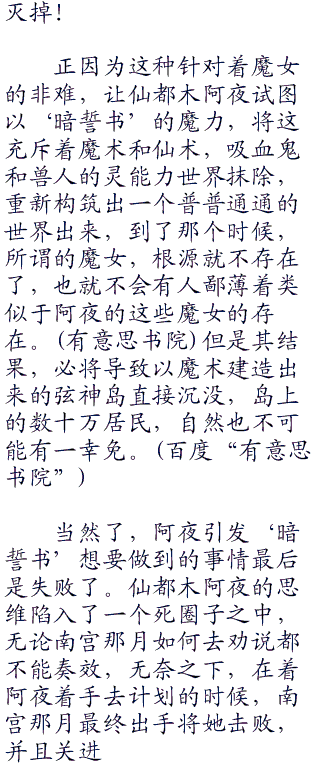 灭掉！
正因为这种针对着魔女
的非难，让仙都木阿夜试图
以‘暗誓书’的魔力，将这
充斥着魔术和仙术，吸血鬼
和兽人的灵能力世界抹除，
重新构筑出一个普普通通的
世界出来，到了那个时候，
所谓的魔女，根源就不存在
了，也就不会有人鄙薄着类
似于阿夜的这些魔女的存
在。(有意思书院)但是其结
果，必将导致以魔术建造出
来的弦神岛直接沉没，岛上
的数十万居民，自然也不可
能有一幸免。(百度“有意思
书院”)
当然了，阿夜引发‘暗
誓书’想要做到的事情最后
是失败了。仙都木阿夜的思
维陷入了一个死圈子之中，
无论南宫那月如何去劝说都
不能奏效，无奈之下，在着
阿夜着手去计划的时候，南
宫那月最终出手将她击败，
并且关进